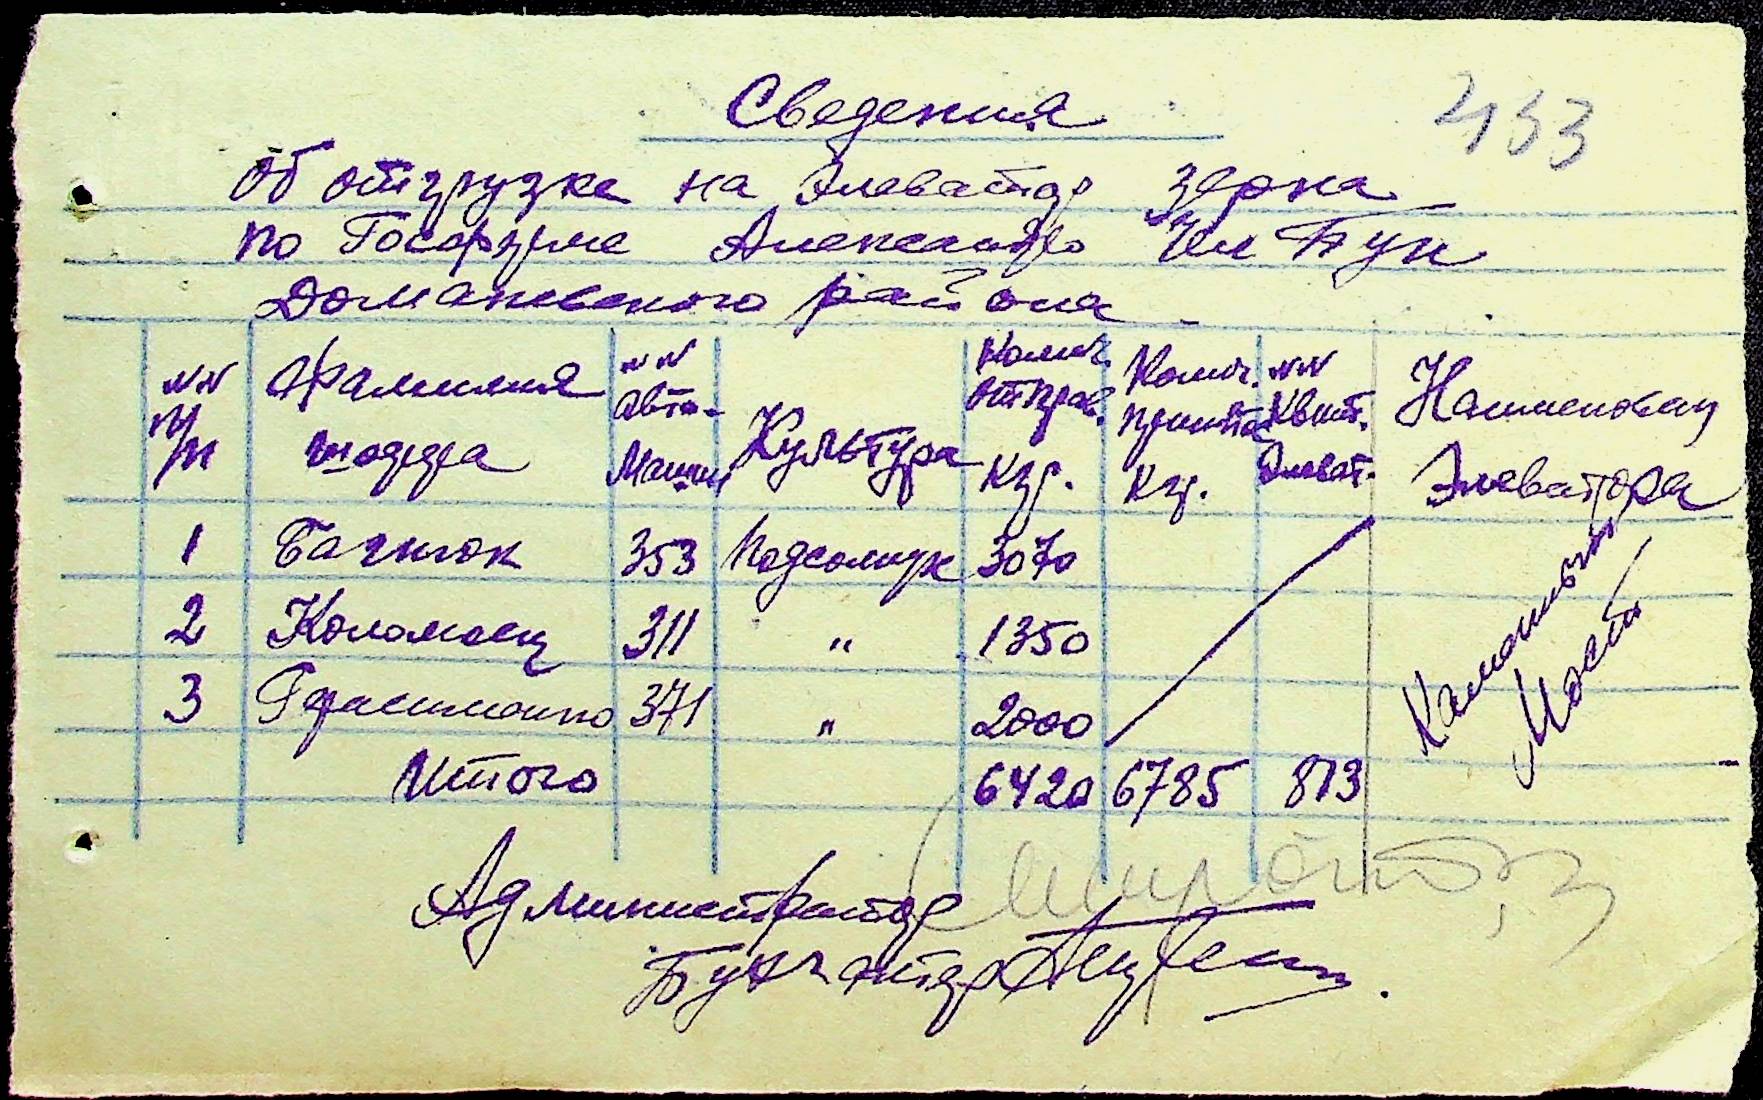 433
Сведения
Об отгрузке на Элеватор зерна
по Госферме Александро
Доманевского района
№№ п/п Фамилия шофера №№ Авто-Машин Культура Колич. отправ. Кгр. Колич. принята Кгр. №№ Квит. Элеват. Наименован Элеватора
1 Багнюк 353 Подсолнух 3070
2 Коломоец 311 " 1350
3 Герасименко 371 " 2000
Итого 6420 6785 813
Мост
Администратор
Бухгалтер